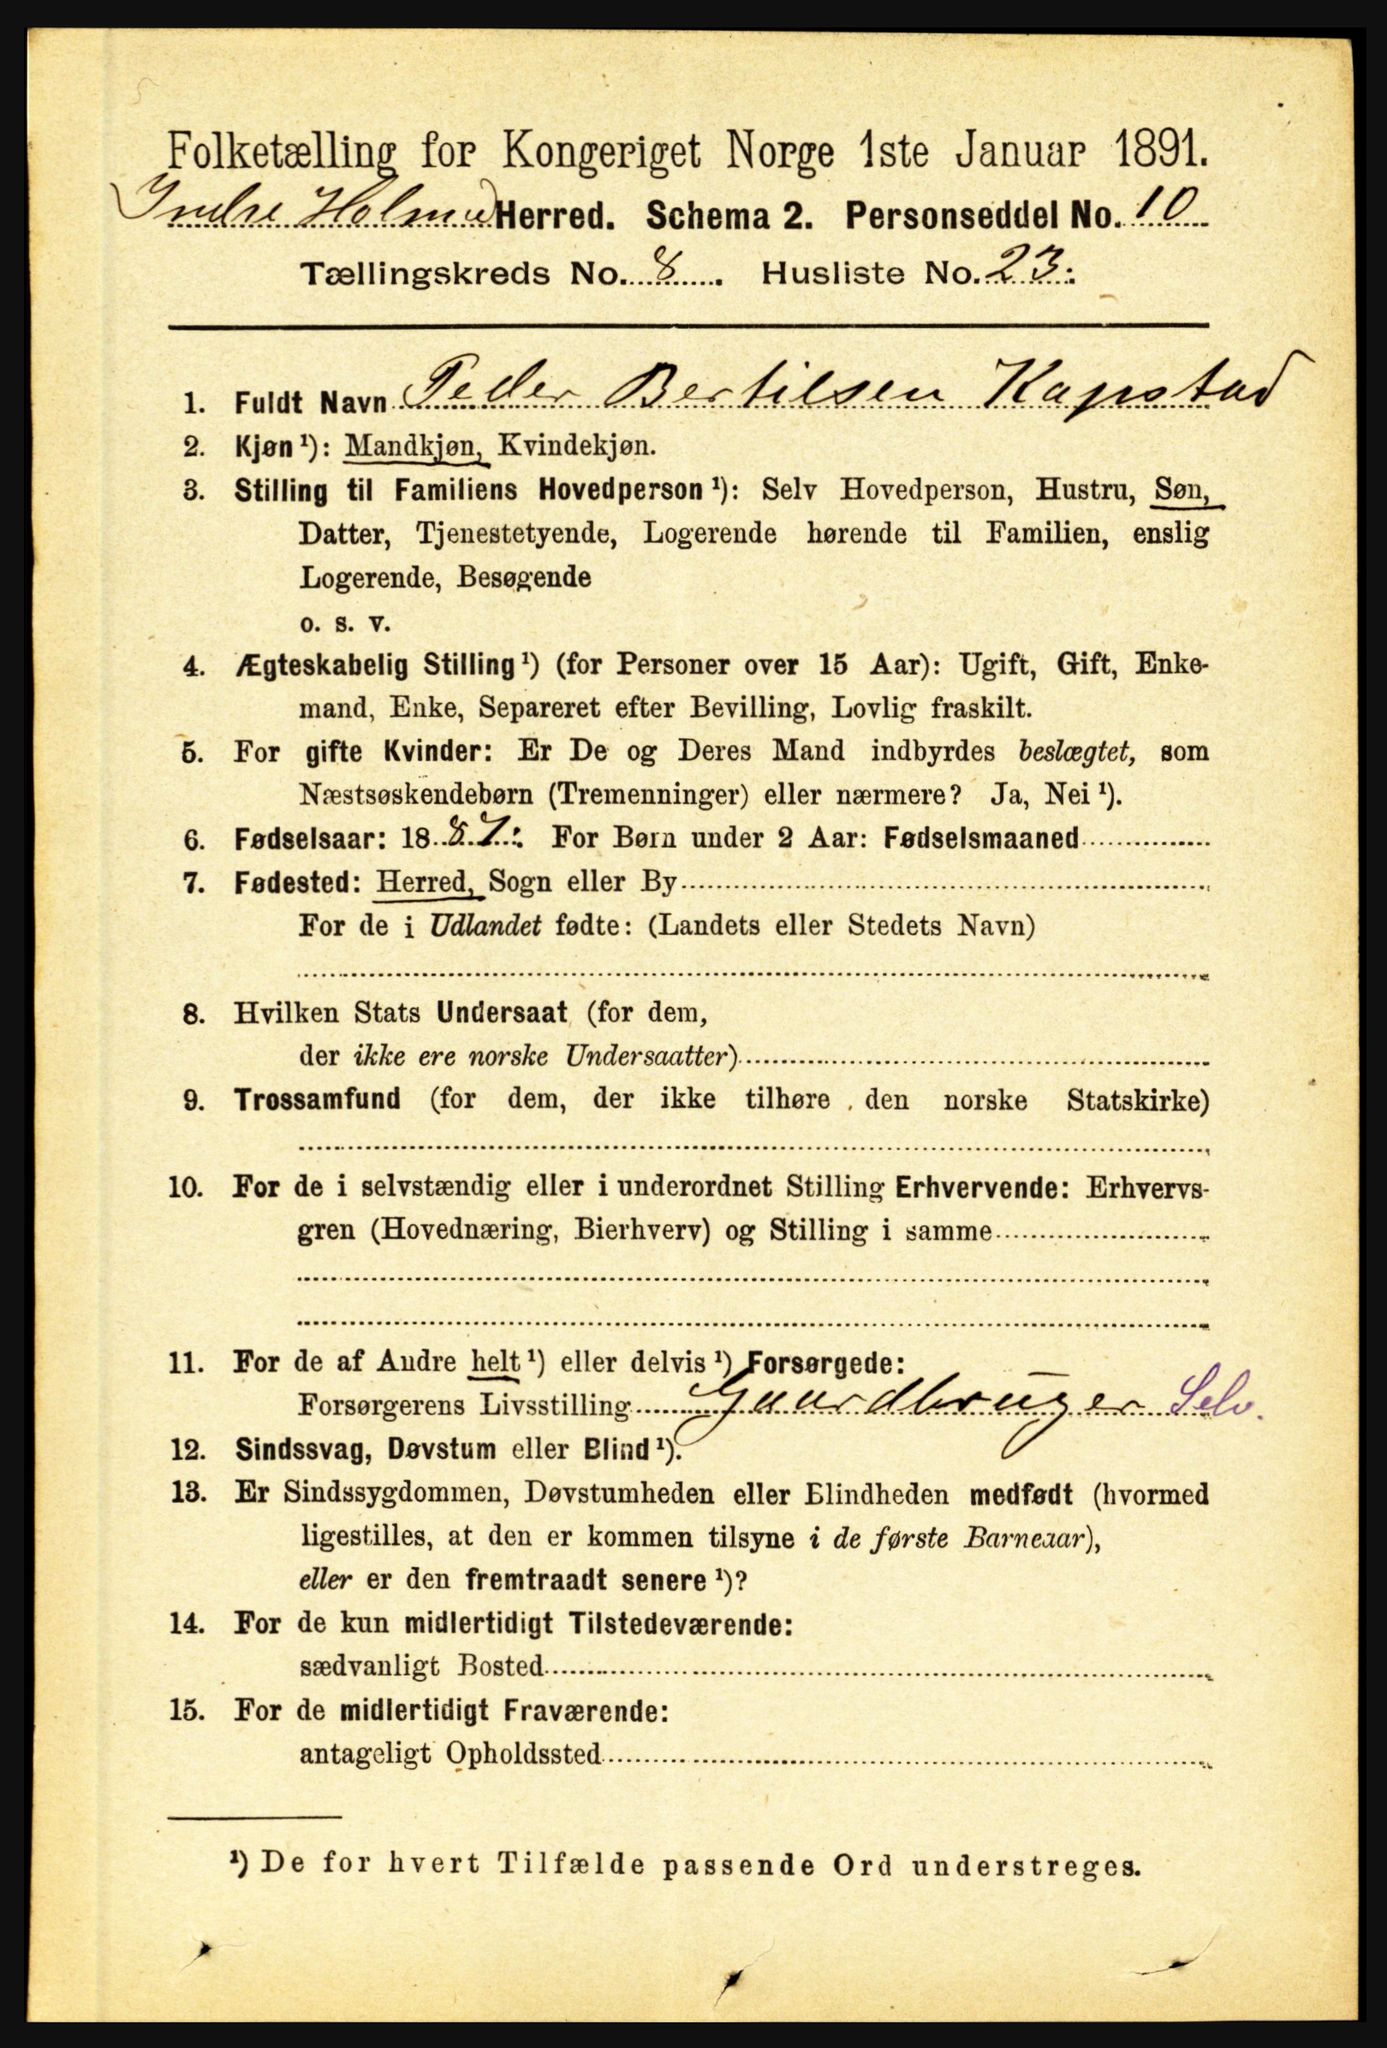 Folketælling for Kongeriget Norge 1ste Januar 1891.
Indre Holmed Herred. Schema 2. Personseddel No. 10
Tællingskreds No. 8. Husliste No. 23.
1. Fuldt Navn Peder Bertilsen Kapstad
2. Kjøn¹): Mandkjøn, Kvindekjøn.
3. Stilling til Familiens Hovedperson¹): Selv Hovedperson, Hustru, Søn,
Datter, Tjenestetyende, Logerende hørende til Familien, enslig
Logerende, Besøgende
o. s. v.
4. Ægteskabelig Stilling¹) (for Personer over 15 Aar): Ugift, Gift, Enke-
mand, Enke, Separeret efter Bevilling, Lovlig fraskilt.
5. For gifte Kvinder: Er De og Deres Mand indbyrdes beslægtet, som
Næstsøskendebørn (Tremenninger) eller nærmere? Ja, Nei¹).
6. Fødselsaar: 1887. For Børn under 2 Aar: Fødselsmaaned
7. Fødested: Herred, Sogn eller By
For de i Udlandet fødte: (Landets eller Stedets Navn)
8. Hvilken Stats Undersaat (for dem,
der ikke ere norske Undersaatter)
9. Trossamfund (for dem, der ikke tilhøre den norske Statskirke)
10. For de i selvstændig eller i underordnet Stilling Erhvervende: Erhvervs-
gren (Hovednæring, Bierhverv) og Stilling i samme
11. For de af Andre helt¹) eller delvis¹) Forsørgede:
Forsørgerens Livsstilling Gaardbruger Selv.
12. Sindssvag, Døvstum eller Blind¹).
13. Er Sindssygdommen, Døvstumheden eller Blindheden medfødt (hvormed
ligestilles, at den er kommen tilsyne i de første Barneaar),
eller er den fremtraadt senere¹)?
14. For de kun midlertidigt Tilstedeværende:
sædvanligt Bosted
15. For de midlertidigt Fraværende:
antageligt Opholdssted
¹) De for hvert Tilfælde passende Ord understreges.